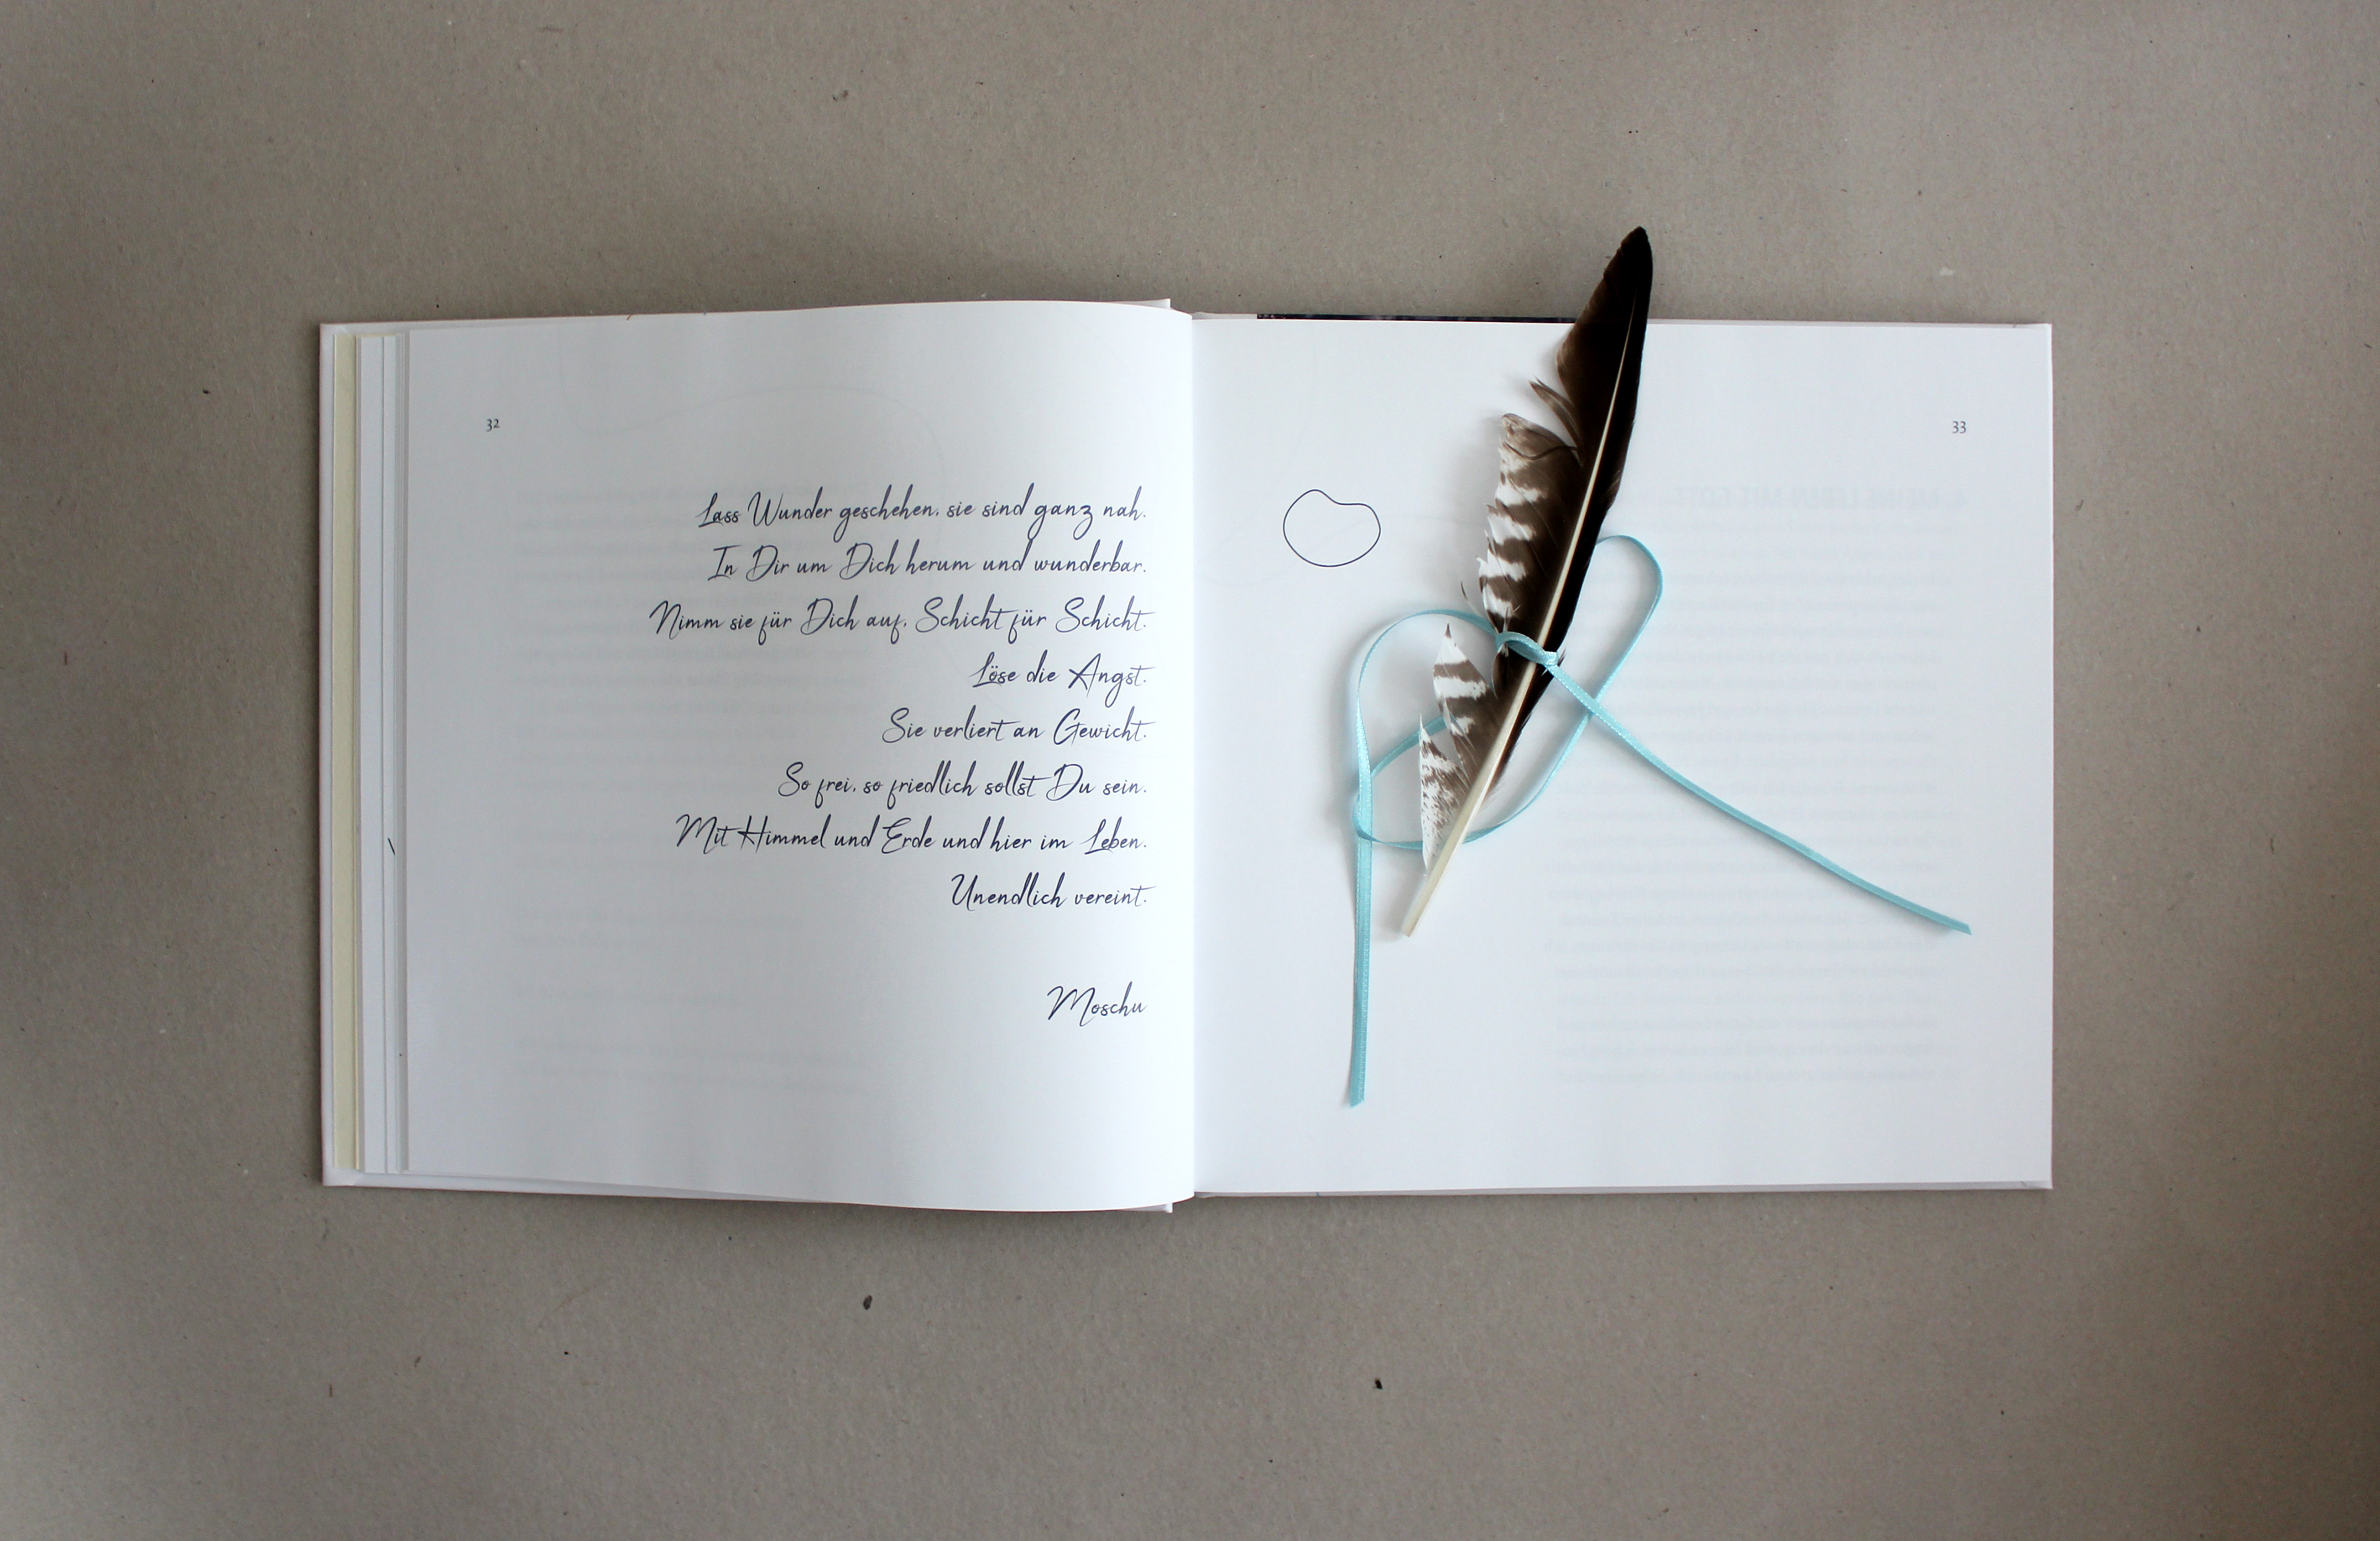 32
Lass Wunder geschehen, sie sind ganz nah.
In Dir um Dich herum und wunderbar.
Nimm sie für Dich auf, Schicht für Schicht.
Löse die Angst.
Sie verliert an Gewicht.
So frei, so friedlich sollst Du sein.
Mit Himmel und Erde und hier im Leben.
Unendlich vereint.
Moschu
33